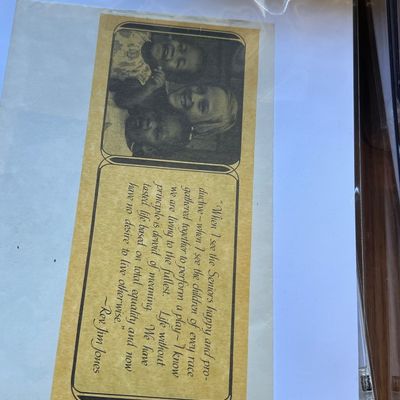 "When I see the Seniors happy and pro-
ductive—when I see the children of every race
gathered together to perform a play—I know
we are living to the fullest. Life without
principle is devoid of meaning. We have
tasted life based on total equality and now
have no desire to live otherwise."
—Rev. Jim Jones